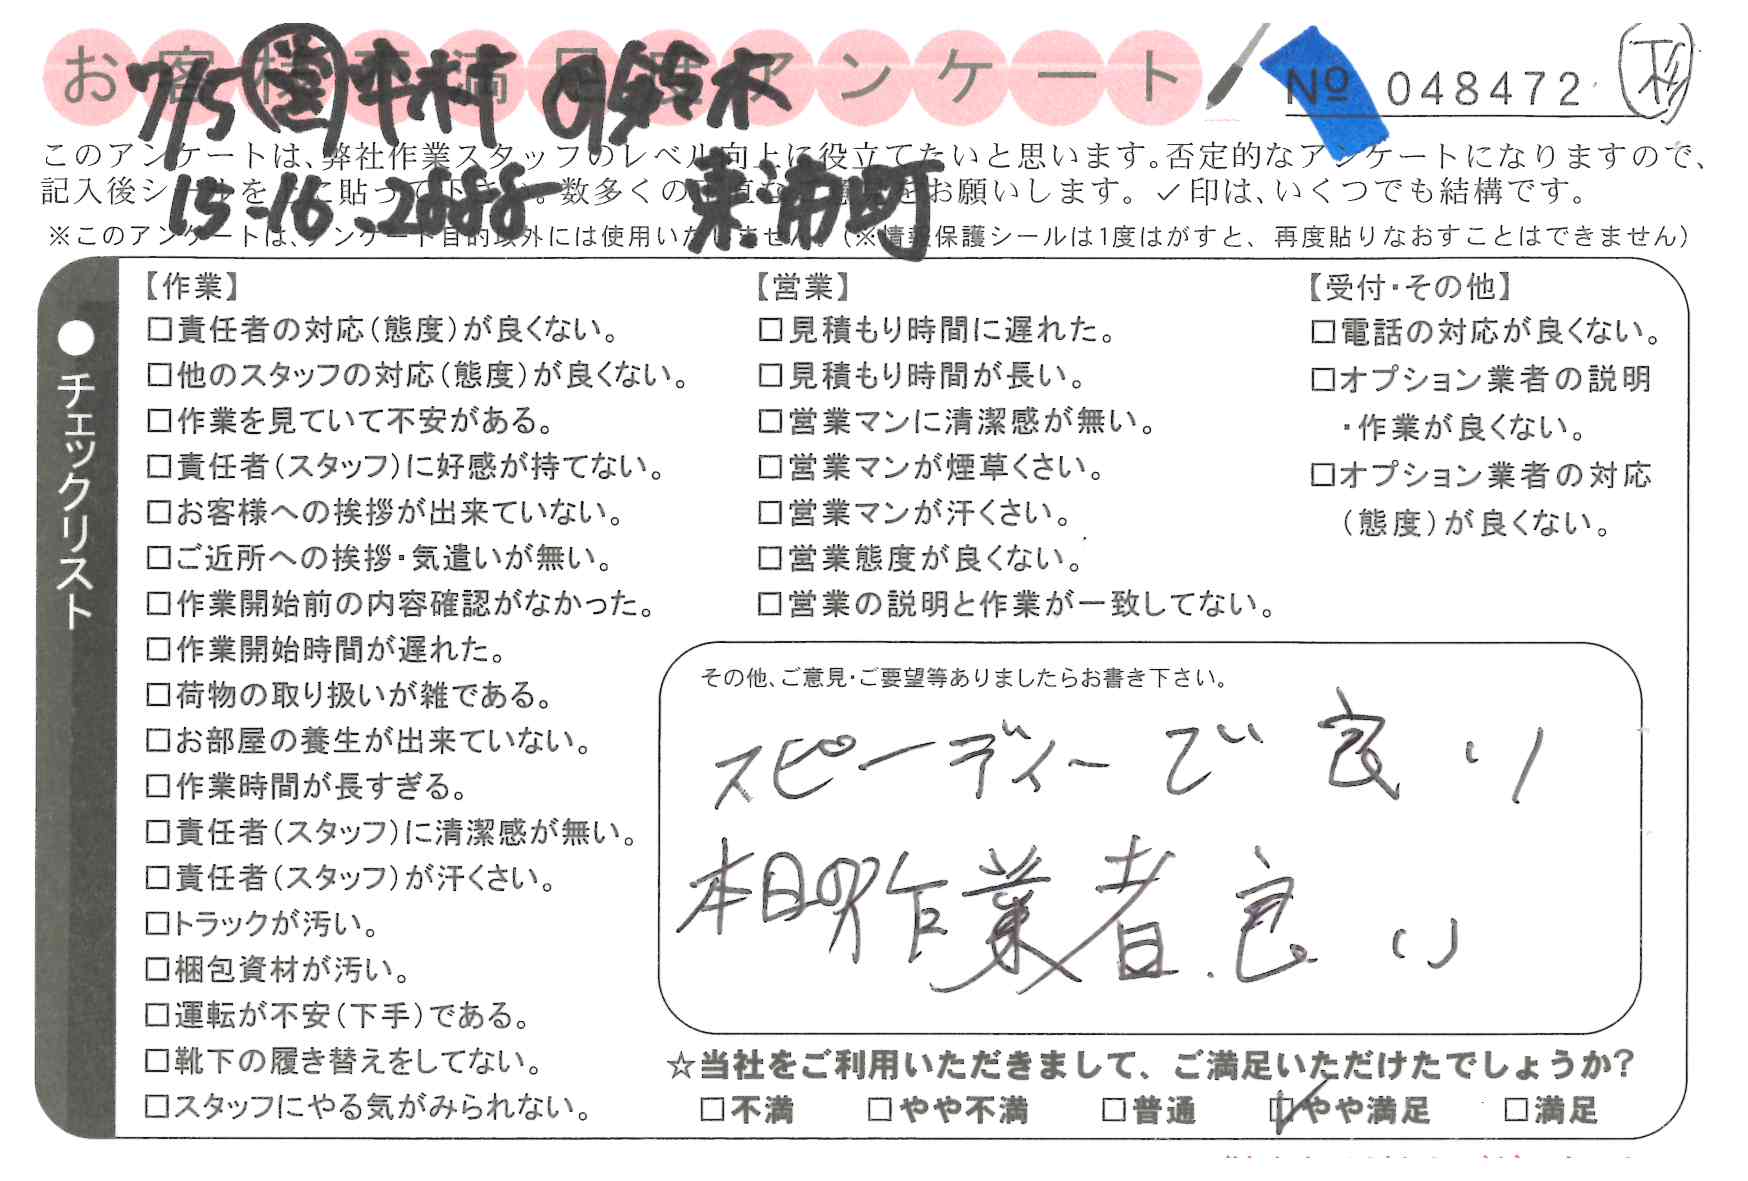 お客様満足度アンケート
No 048472
7/5 平林 鈴木
15-16-2888 東浦町
このアンケートは、弊社作業スタッフのレベル向上に役立てたいと思います。否定的なアンケートになりますので、
記入後シールを上に貼って下さい。数多くの正直なご意見をお願いします。✓印は、いくつでも結構です。
※このアンケートは、アンケート目的以外には使用いたしません。(※情報保護シールは1度はがすと、再度貼りなおすことはできません)
●チェックリスト
【作業】
□責任者の対応(態度)が良くない。
□他のスタッフの対応(態度)が良くない。
□作業を見ていて不安がある。
□責任者(スタッフ)に好感が持てない。
□お客様への挨拶が出来ていない。
□ご近所への挨拶・気遣いが無い。
□作業開始前の内容確認がなかった。
□作業開始時間が遅れた。
□荷物の取り扱いが雑である。
□お部屋の養生が出来ていない。
□作業時間が長すぎる。
□責任者(スタッフ)に清潔感が無い。
□責任者(スタッフ)が汗くさい。
□トラックが汚い。
□梱包資材が汚い。
□運転が不安(下手)である。
□靴下の履き替えをしてない。
□スタッフにやる気がみられない。
【営業】
□見積もり時間に遅れた。
□見積もり時間が長い。
□営業マンに清潔感が無い。
□営業マンが煙草くさい。
□営業マンが汗くさい。
□営業態度が良くない。
□営業の説明と作業が一致してない。
【受付・その他】
□電話の対応が良くない。
□オプション業者の説明
・作業が良くない。
□オプション業者の対応
(態度)が良くない。
その他、ご意見・ご要望等ありましたらお書き下さい。
スピーディーで良い
本日の作業者.良い
☆当社をご利用いただきまして、ご満足いただけたでしょうか?
□不満 □やや不満 □普通 ☑やや満足 □満足